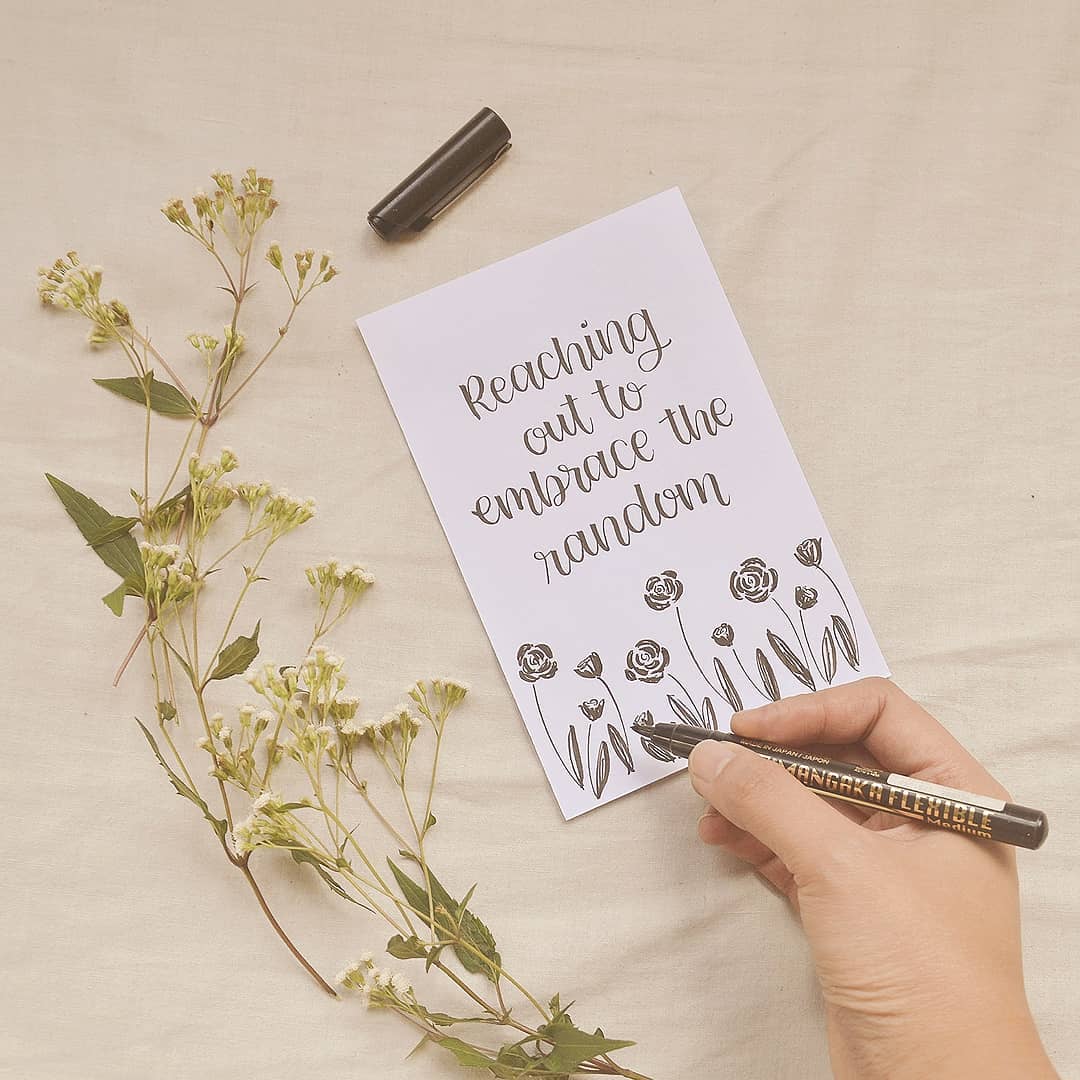 Reaching
out to
embrace the
random
MADE IN JAPAN/JAPON
MANGAKA FLEXIBLE
Medium